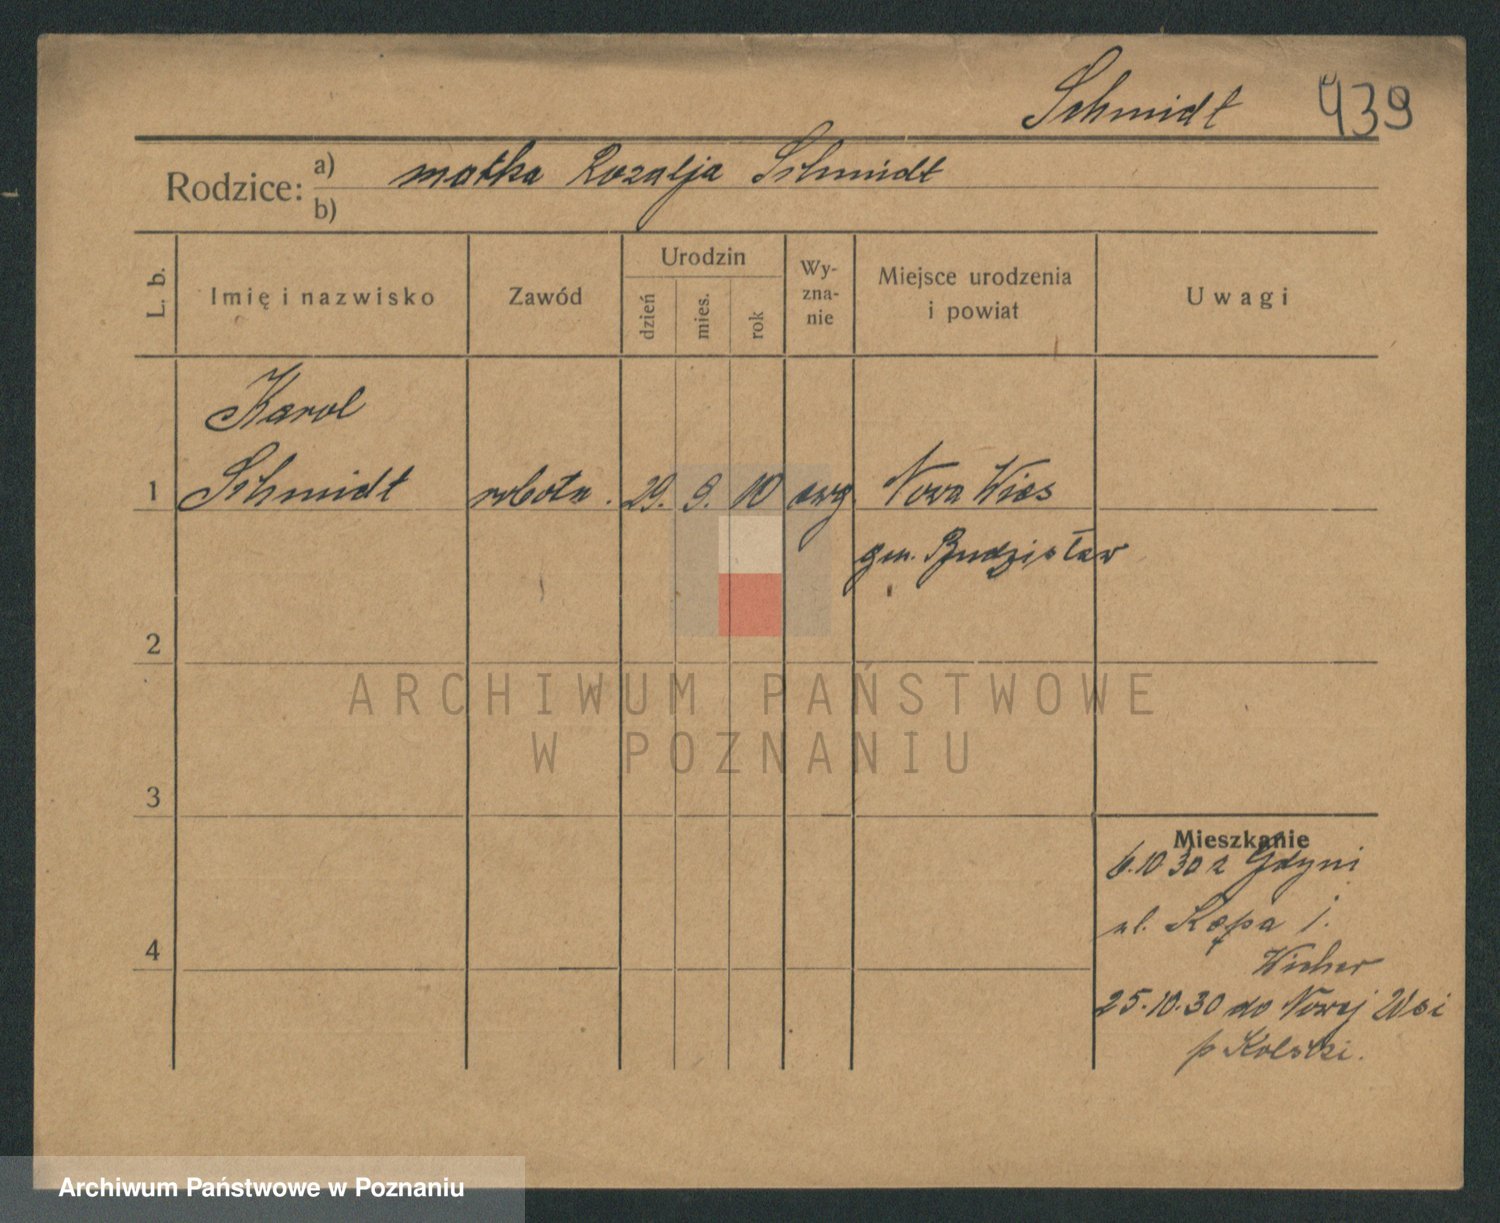 Schmidt 939
Rodzice: a) matka Rozalja Schmidt
b)
L. b. Imię i nazwisko Zawód Urodzin dzień mies. rok Wy-zna-nie Miejsce urodzenia i powiat Uwagi
Karol
1 Schmidt robotn. 29. 9. 10 ewg. Nowa Wieś
gm. Budzisław
2
ARCHIWUM PAŃSTWOWE
W POZNANIU
3
Mieszkanie
6.10 30 z Gdyni
ul. Kępa j.
Wicher
4
25.10.30 do Nowej Wsi
p Kolski.
Archiwum Państwowe w Poznaniu